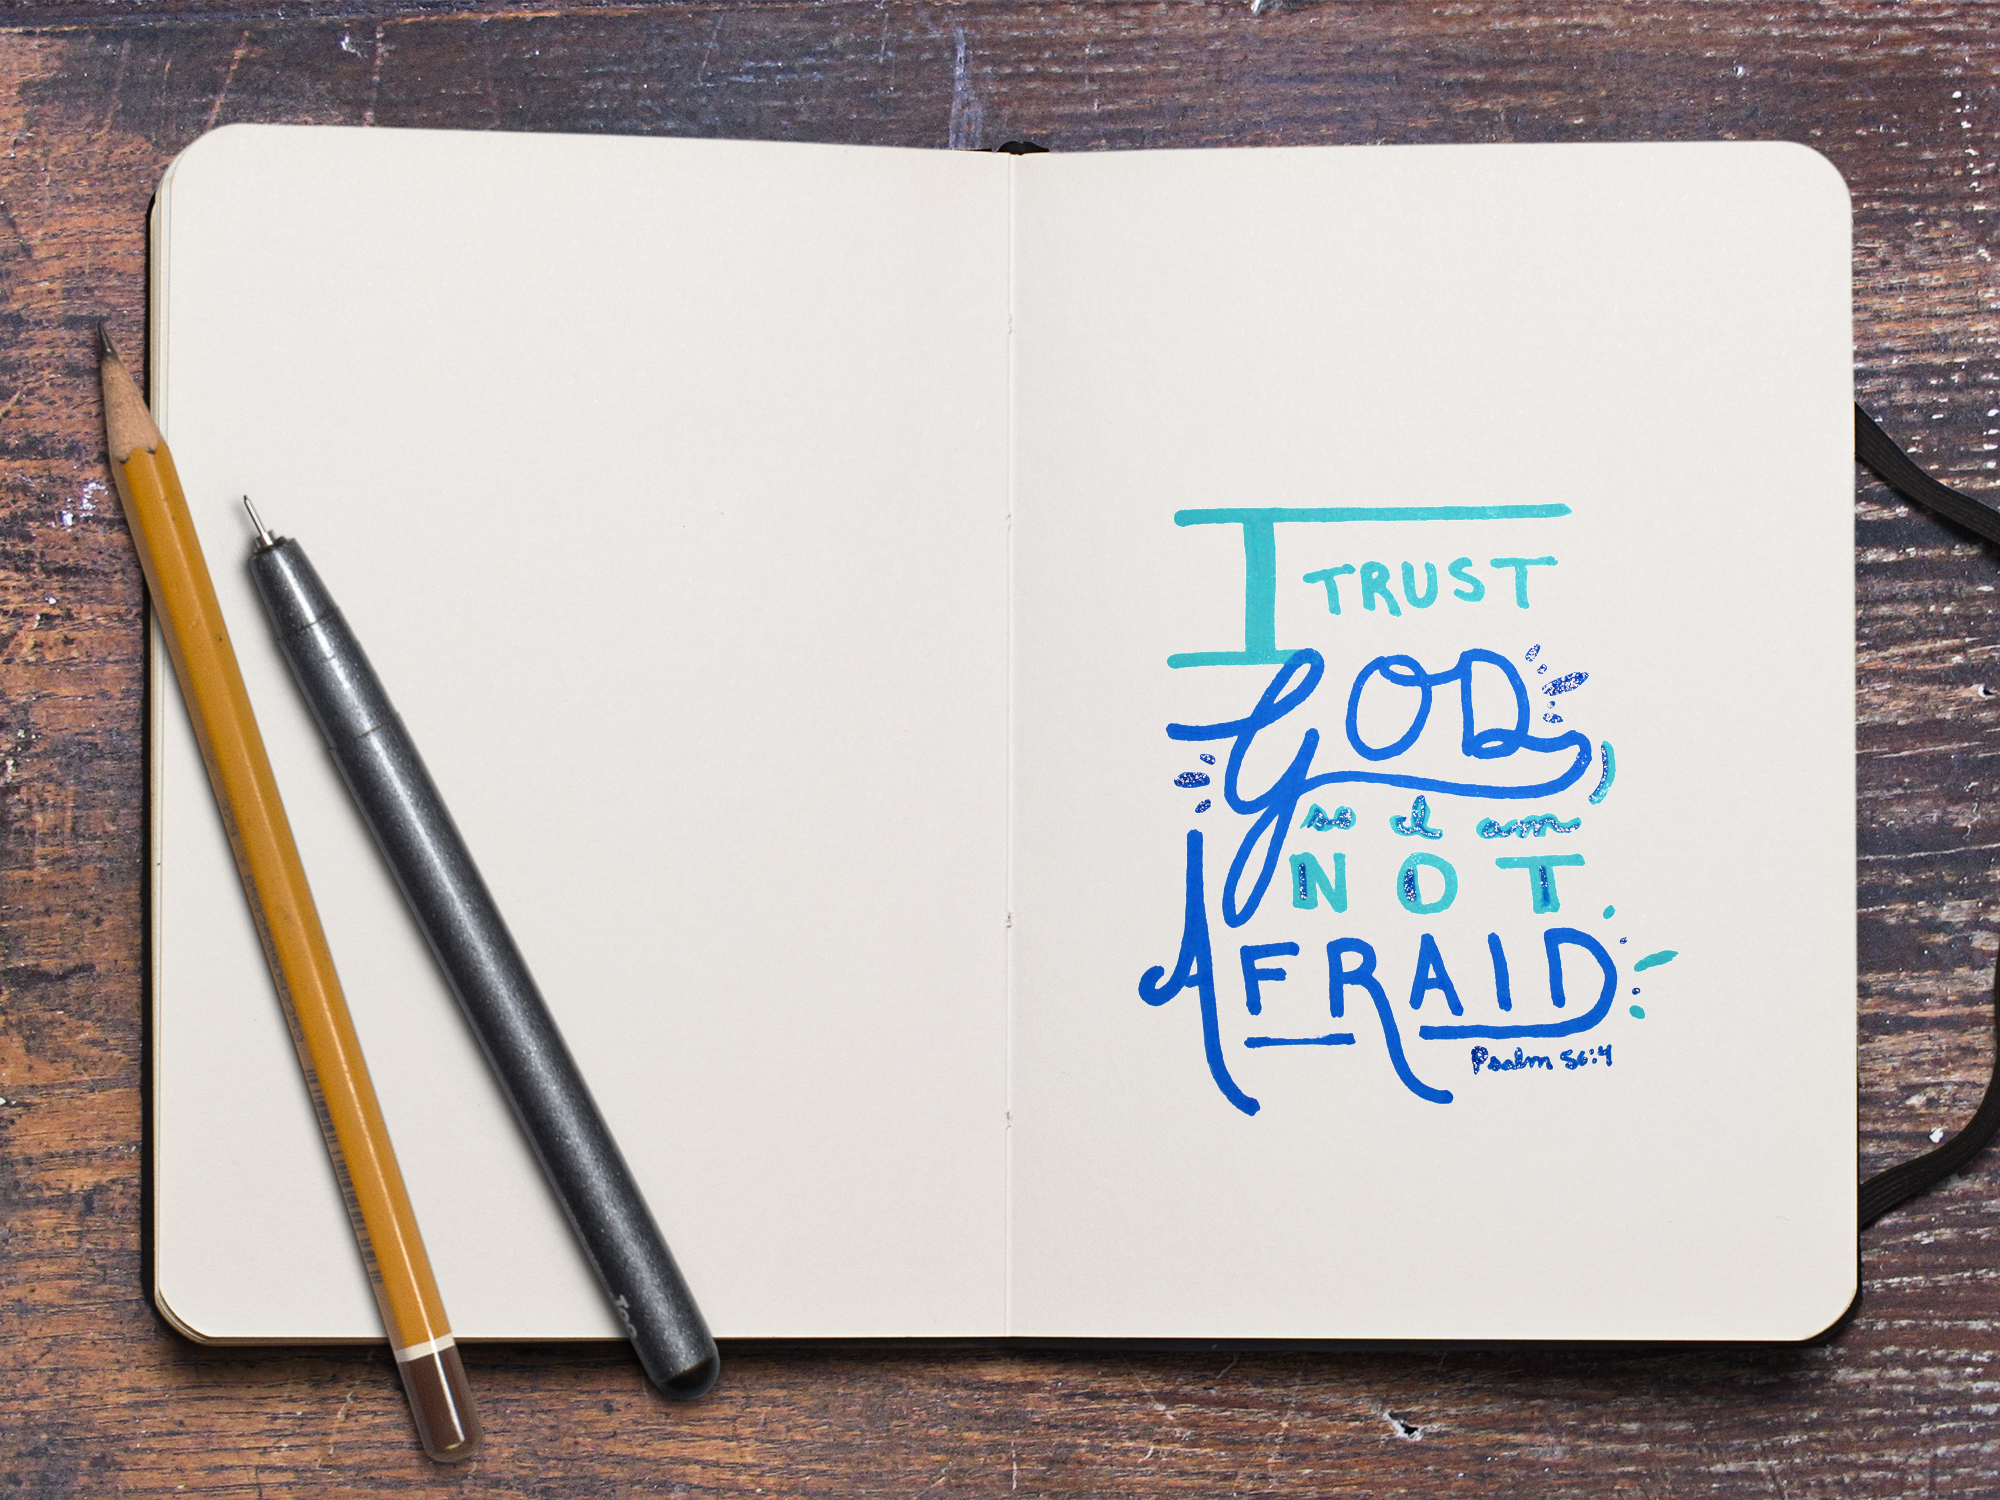 I TRUST
GOD,
so I am
NOT
AFRAID
Psalm 56:4